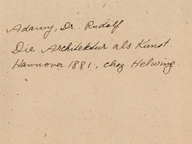 Adamy, Dr. Rudolf
Die Architektur als Kunst.
Hannover 1881, chez Helwing.